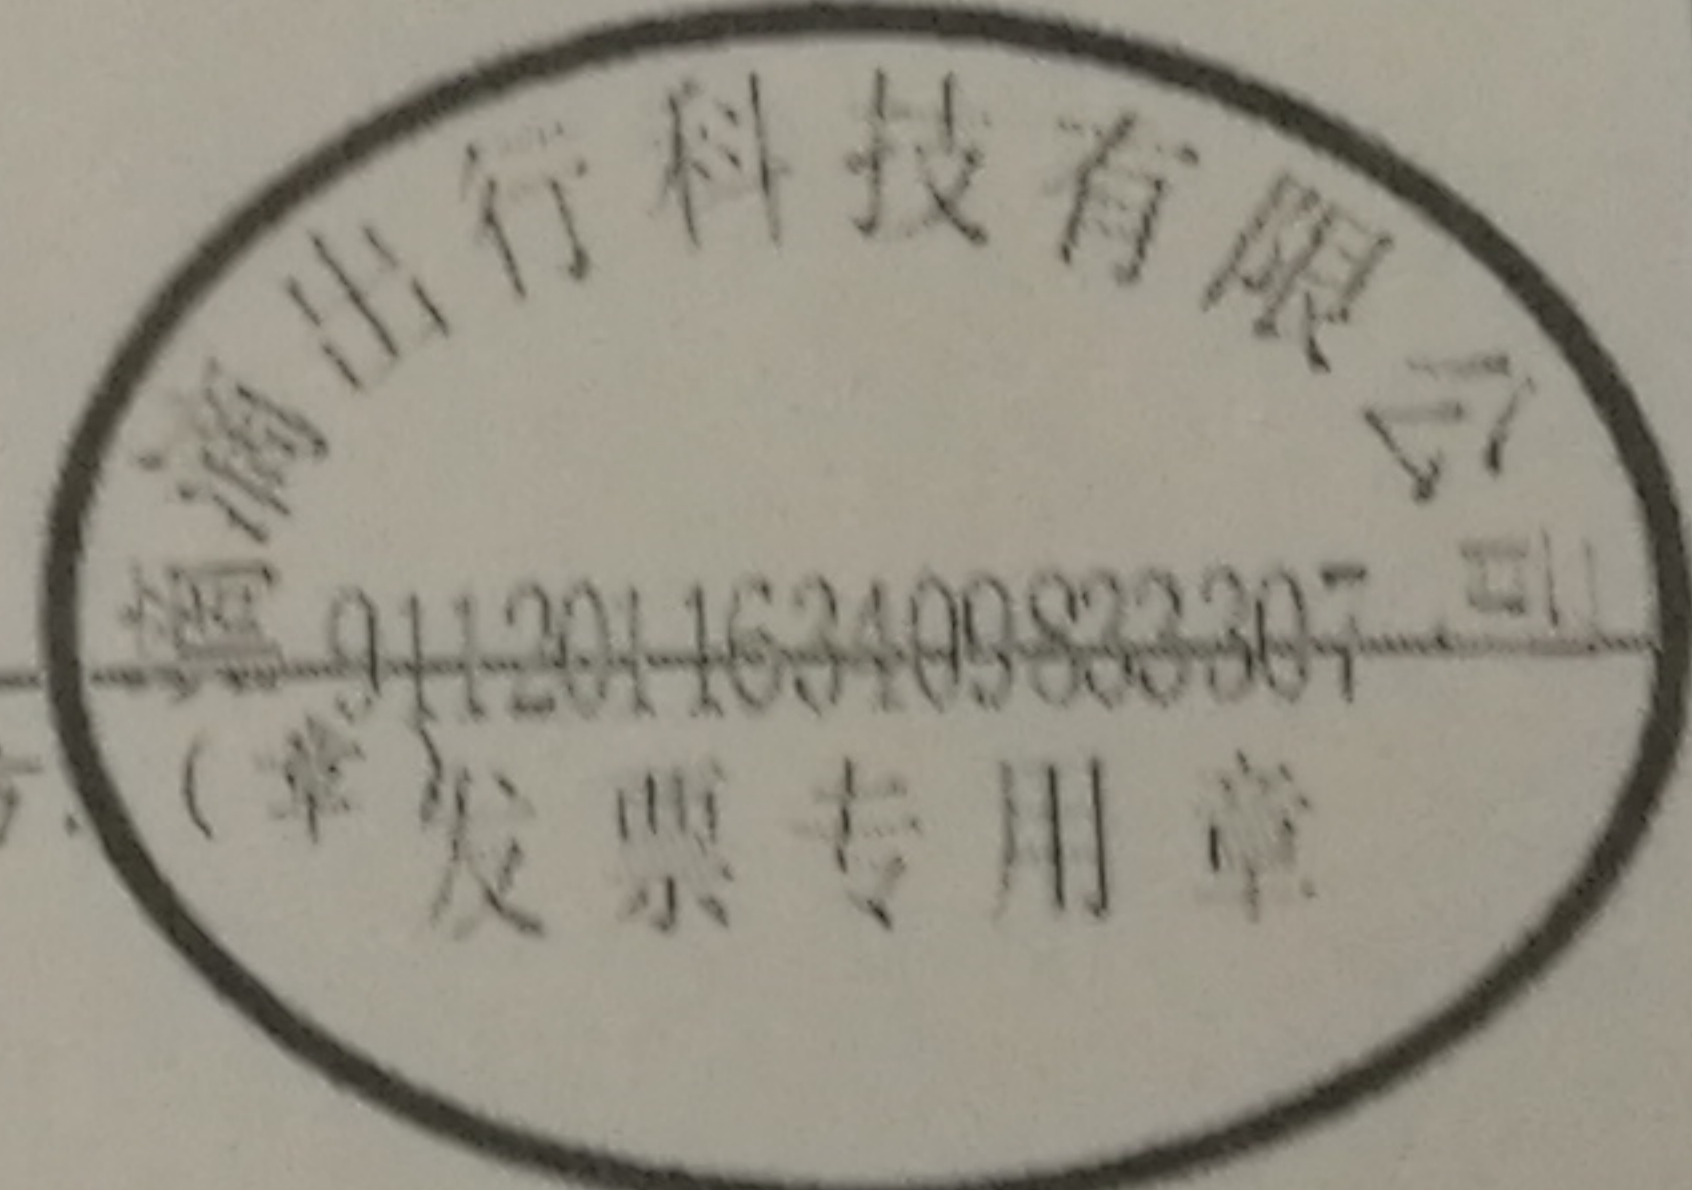 滴滴出行科技有限公司
911201163409833307
（章）
发票专用章